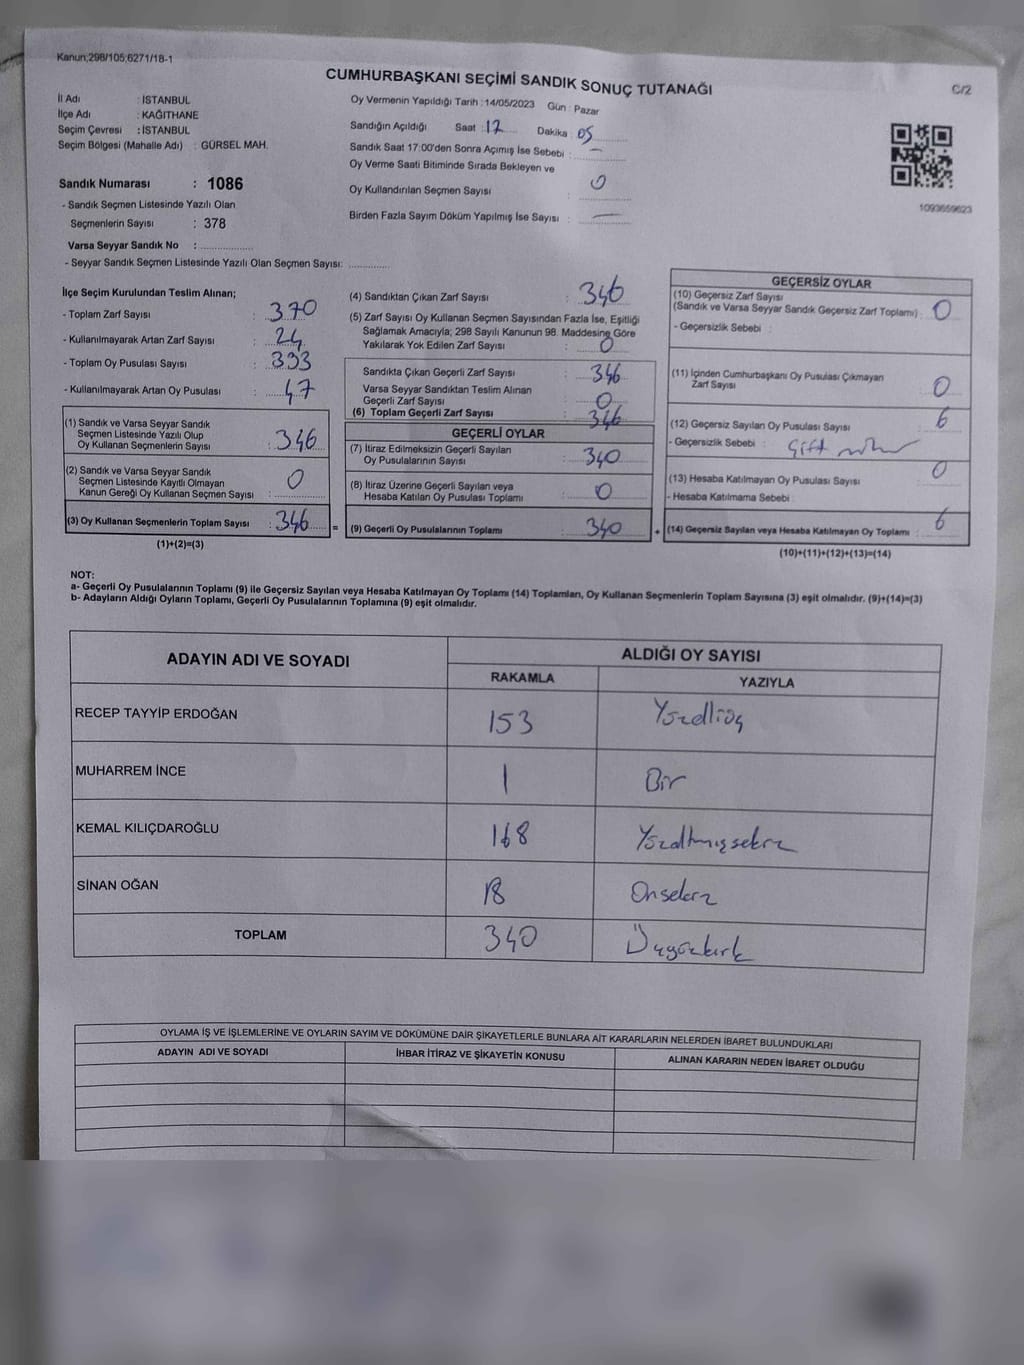 Kanun;298/105;6271/18-1
CUMHURBAŞKANI SEÇİMİ SANDIK SONUÇ TUTANAĞI
C/2
İl Adı : İSTANBUL
İlçe Adı : KAĞITHANE
Seçim Çevresi : İSTANBUL
Seçim Bölgesi (Mahalle Adı) : GÜRSEL MAH.
Sandık Numarası : 1086
- Sandık Seçmen Listesinde Yazılı Olan
Seçmenlerin Sayısı : 378
Varsa Seyyar Sandık No : ..............
- Seyyar Sandık Seçmen Listesinde Yazılı Olan Seçmen Sayısı: ............
Oy Vermenin Yapıldığı Tarih : 14/05/2023 Gün : Pazar
Sandığın Açıldığı Saat : 17 Dakika : 05
Sandık Saat 17:00'den Sonra Açımış İse Sebebi : –
Oy Verme Saati Bitiminde Sırada Bekleyen ve
Oy Kullandırılan Seçmen Sayısı : 0
Birden Fazla Sayım Döküm Yapılmış İse Sayısı : —
1093659623
İlçe Seçim Kurulundan Teslim Alınan;
- Toplam Zarf Sayısı : 370
- Kullanılmayarak Artan Zarf Sayısı : 24
- Toplam Oy Pusulası Sayısı : 393
- Kullanılmayarak Artan Oy Pusulası : 47
(1) Sandık ve Varsa Seyyar Sandık
Seçmen Listesinde Yazılı Olup
Oy Kullanan Seçmenlerin Sayısı : 346
(2) Sandık ve Varsa Seyyar Sandık
Seçmen Listesinde Kayıtlı Olmayan
Kanun Gereği Oy Kullanan Seçmen Sayısı : 0
(3) Oy Kullanan Seçmenlerin Toplam Sayısı : 346 =
(1)+(2)=(3)
(4) Sandıktan Çıkan Zarf Sayısı : 346
(5) Zarf Sayısı Oy Kullanan Seçmen Sayısından Fazla İse, Eşitliği
Sağlamak Amacıyla; 298 Sayılı Kanunun 98. Maddesine Göre
Yakılarak Yok Edilen Zarf Sayısı : 0
Sandıkta Çıkan Geçerli Zarf Sayısı : 346
Varsa Seyyar Sandıktan Teslim Alınan
Geçerli Zarf Sayısı : 0
(6) Toplam Geçerli Zarf Sayısı : 346
GEÇERLİ OYLAR
(7) İtiraz Edilmeksizin Geçerli Sayılan
Oy Pusulalarının Sayısı : 340
(8) İtiraz Üzerine Geçerli Sayılan veya
Hesaba Katılan Oy Pusulası Toplamı : 0
(9) Geçerli Oy Pusulalarının Toplamı : 340 +
GEÇERSİZ OYLAR
(10) Geçersiz Zarf Sayısı
(Sandık ve Varsa Seyyar Sandık Geçersiz Zarf Toplamı) : 0
- Geçersizlik Sebebi :
(11) İçinden Cumhurbaşkanı Oy Pusulası Çıkmayan
Zarf Sayısı : 0
(12) Geçersiz Sayılan Oy Pusulası Sayısı : 6
- Geçersizlik Sebebi : Çift
(13) Hesaba Katılmayan Oy Pusulası Sayısı : 0
- Hesaba Katılmama Sebebi :
(14) Geçersiz Sayılan veya Hesaba Katılmayan Oy Toplamı : 6
(10)+(11)+(12)+(13)=(14)
NOT:
a- Geçerli Oy Pusulalarının Toplamı (9) ile Geçersiz Sayılan veya Hesaba Katılmayan Oy Toplamı (14) Toplamları, Oy Kullanan Seçmenlerin Toplam Sayısına (3) eşit olmalıdır. (9)+(14)=(3)
b- Adayların Aldığı Oyların Toplamı, Geçerli Oy Pusulalarının Toplamına (9) eşit olmalıdır.
ADAYIN ADI VE SOYADI
ALDIĞI OY SAYISI
RAKAMLA YAZIYLA
RECEP TAYYİP ERDOĞAN 153 Yüzelliüç
MUHARREM İNCE 1 Bir
KEMAL KILIÇDAROĞLU 168 Yüzaltmışsekiz
SİNAN OĞAN 18 Onsekiz
TOPLAM 340 Üçyüzkırk
OYLAMA İŞ VE İŞLEMLERİNE VE OYLARIN SAYIM VE DÖKÜMÜNE DAİR ŞİKAYETLERLE BUNLARA AİT KARARLARIN NELERDEN İBARET BULUNDUKLARI
ADAYIN ADI VE SOYADI İHBAR İTİRAZ VE ŞİKAYETİN KONUSU ALINAN KARARIN NEDEN İBARET OLDUĞU